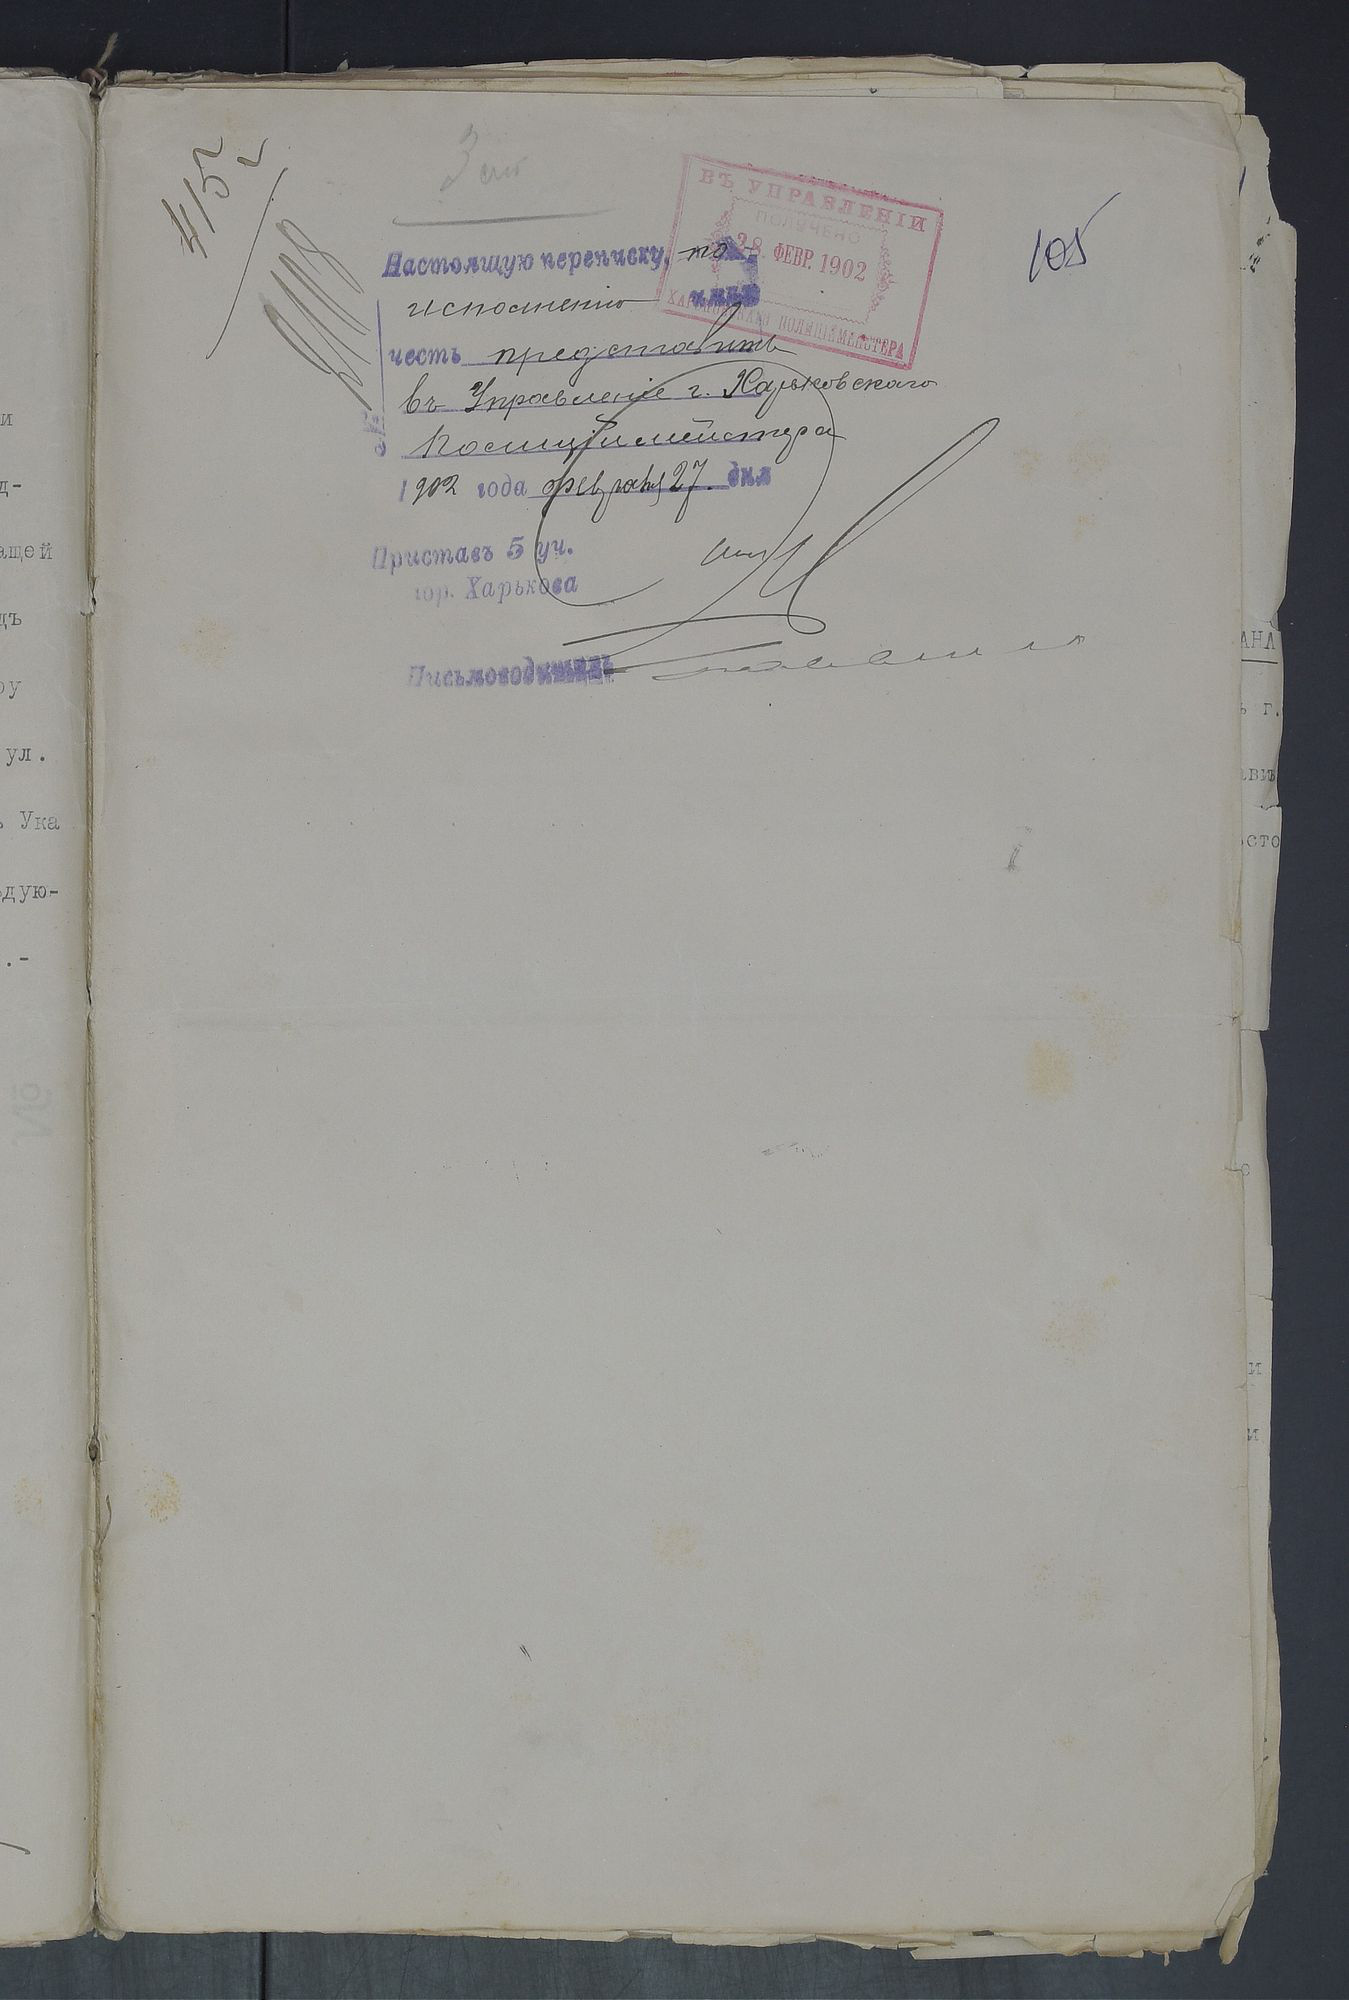 415
105
ВЪ УПРАВЛЕНІИ
ПОЛУЧЕНО
28. ФЕВР. 1902
ХАРЬКОВСКАГО ПОЛИЦІЙМЕЙСТЕРА
Настоящую переписку, по
исполненію имѣю
честь представить
въ Управленіе г. Харьковскаго
Полиціймейстера
№
1902 года февраля 27. дня
Приставъ 5 уч.
гор. Харькова
Письмоводитель
и
д-
ащей
дъ
ру
ул.
ъ Ука
ѣдую-
.-
АНА
ъ г.
авиъ
ѣсто
с
и
и